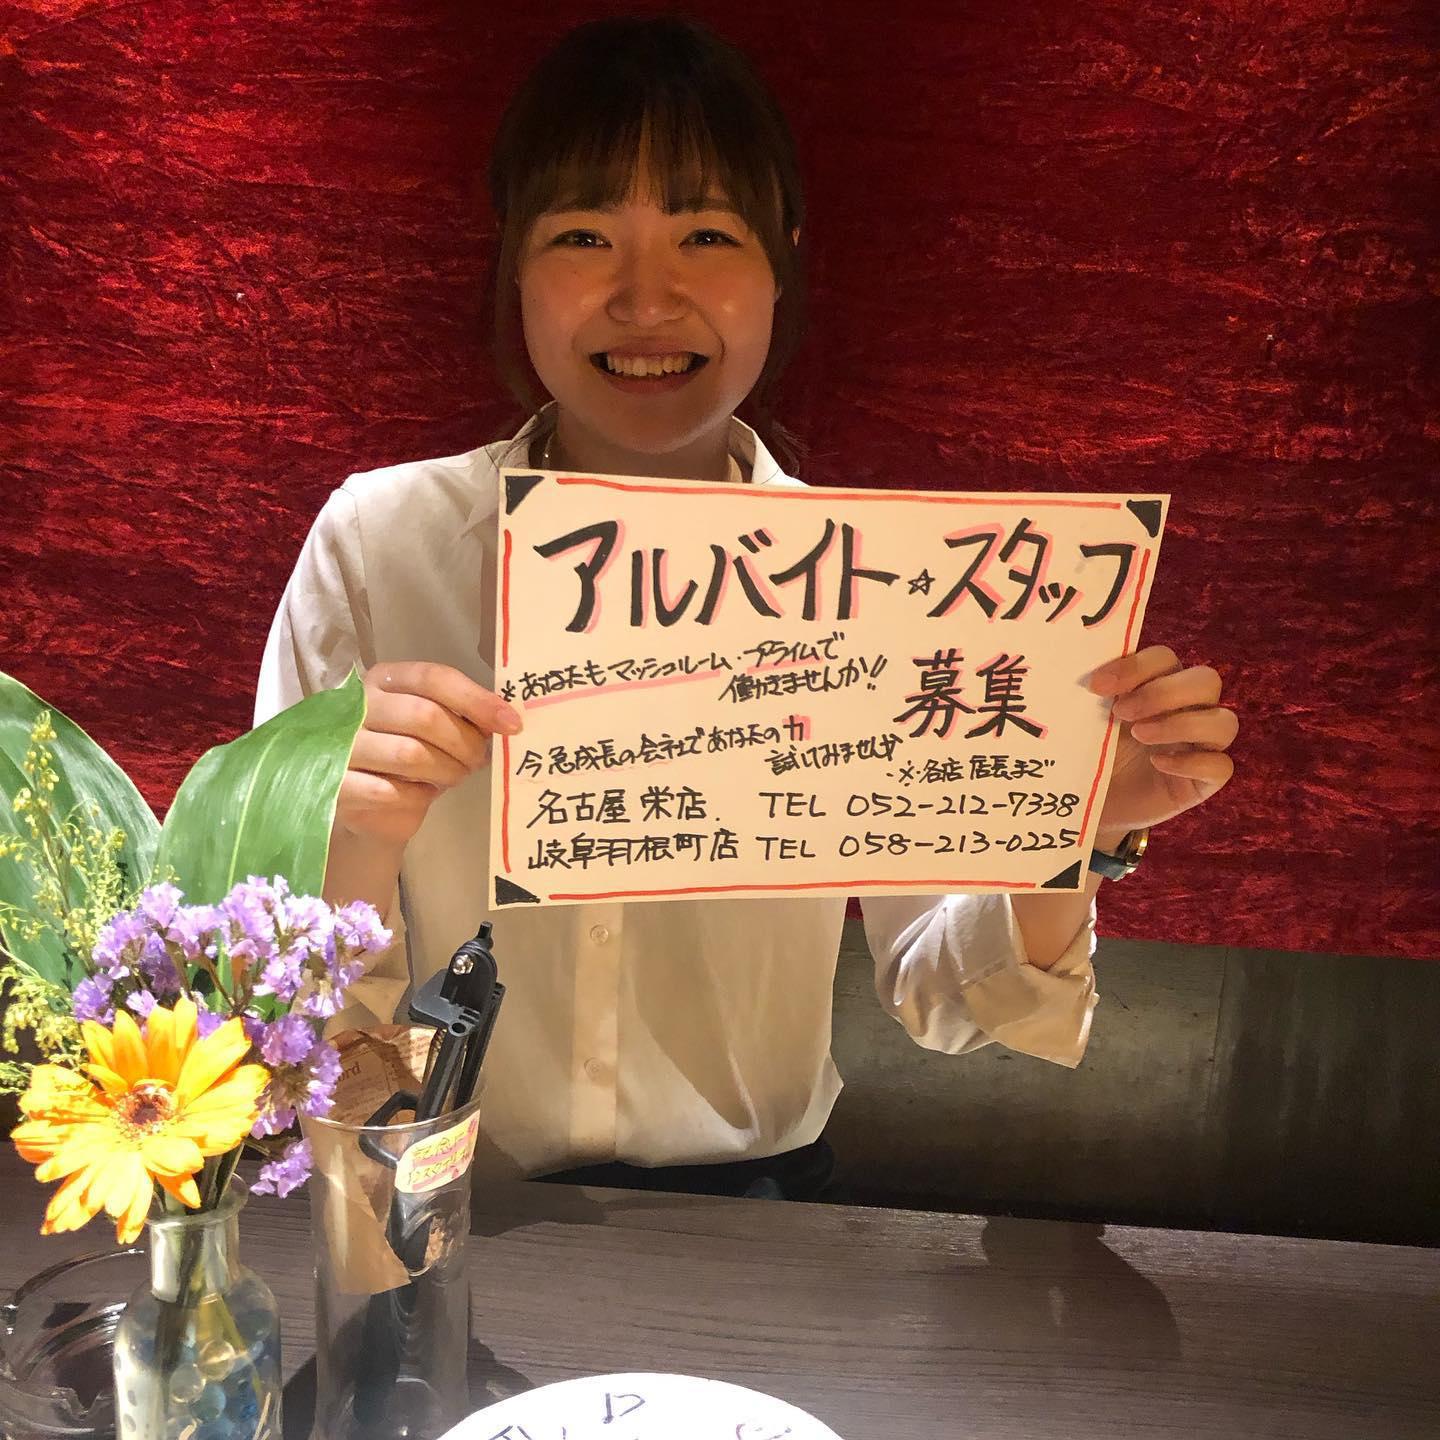 アルバイト☆スタッフ
募集
※あなたもマッシュルーム・プライムで
働きませんか!!
今急成長の会社であなたの力
試してみませんか
※各店店長まで
名古屋 栄店. TEL 052-212-7338
岐阜羽根町店 TEL 058-213-0225